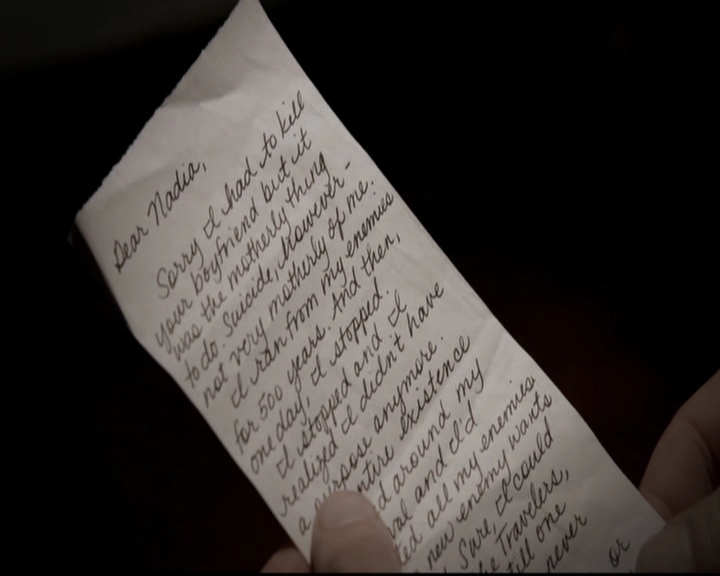 Dear Nadia,
Sorry I had to kill
your boyfriend but it
was the motherly thing
to do. Suicide, however -
not very motherly of me.
I ran from my enemies
for 500 years. And then,
one day I stopped.
I stopped and I
realized I didn't have
a purpose anymore.
entire existence
around my
and I'd
all my enemies
new enemy wants
Sure, I could
Travelers,
still one
never
or